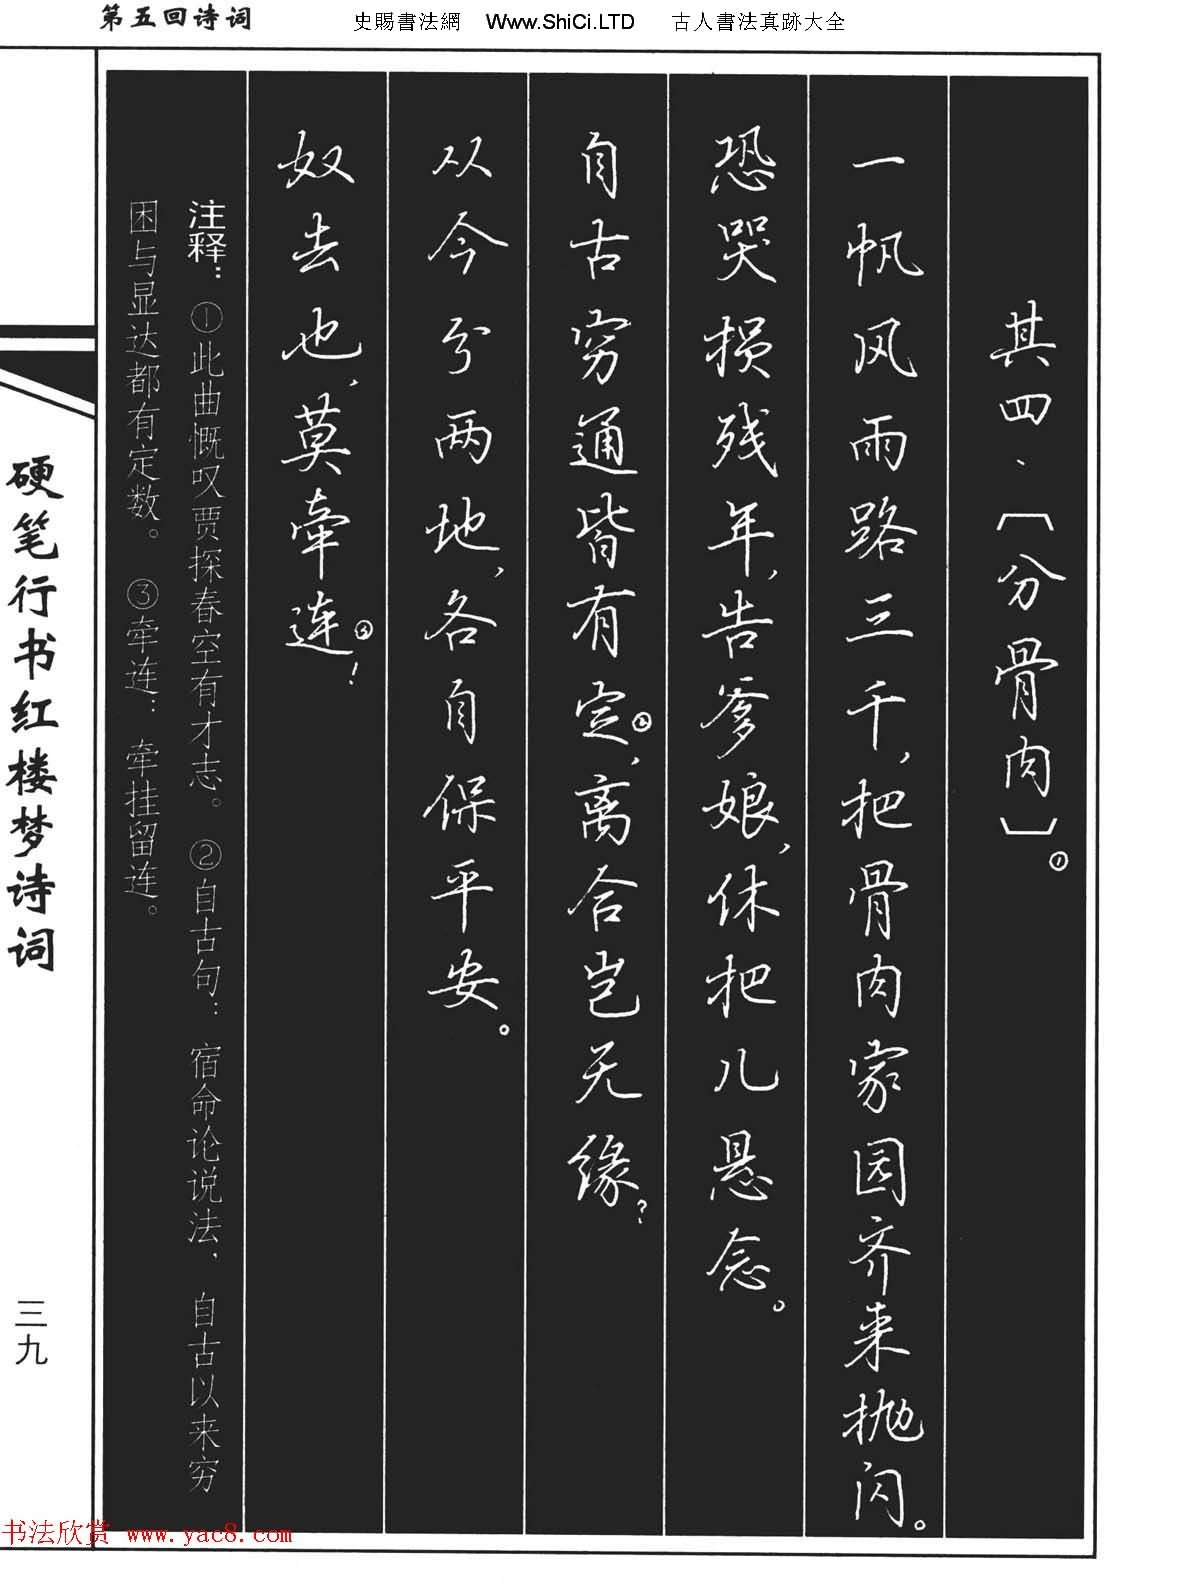 第五回诗词
史賜書法網 Www.ShiCi.LTD 古人書法真跡大全
其四、〔分骨肉〕①
一帆风雨路三千，把骨肉家园齐来抛闪。
恐哭损残年，告爹娘，休把儿悬念。
自古穷通皆有定②，离合岂无缘？
从今分两地，各自保平安。
奴去也，莫牵连③！
注释：①此曲慨叹贾探春空有才志。②自古句：宿命论说法，自古以来穷
困与显达都有定数。③牵连：牵挂留连。
硬笔行书红楼梦诗词
三九
书法欣赏 www.yac8.com